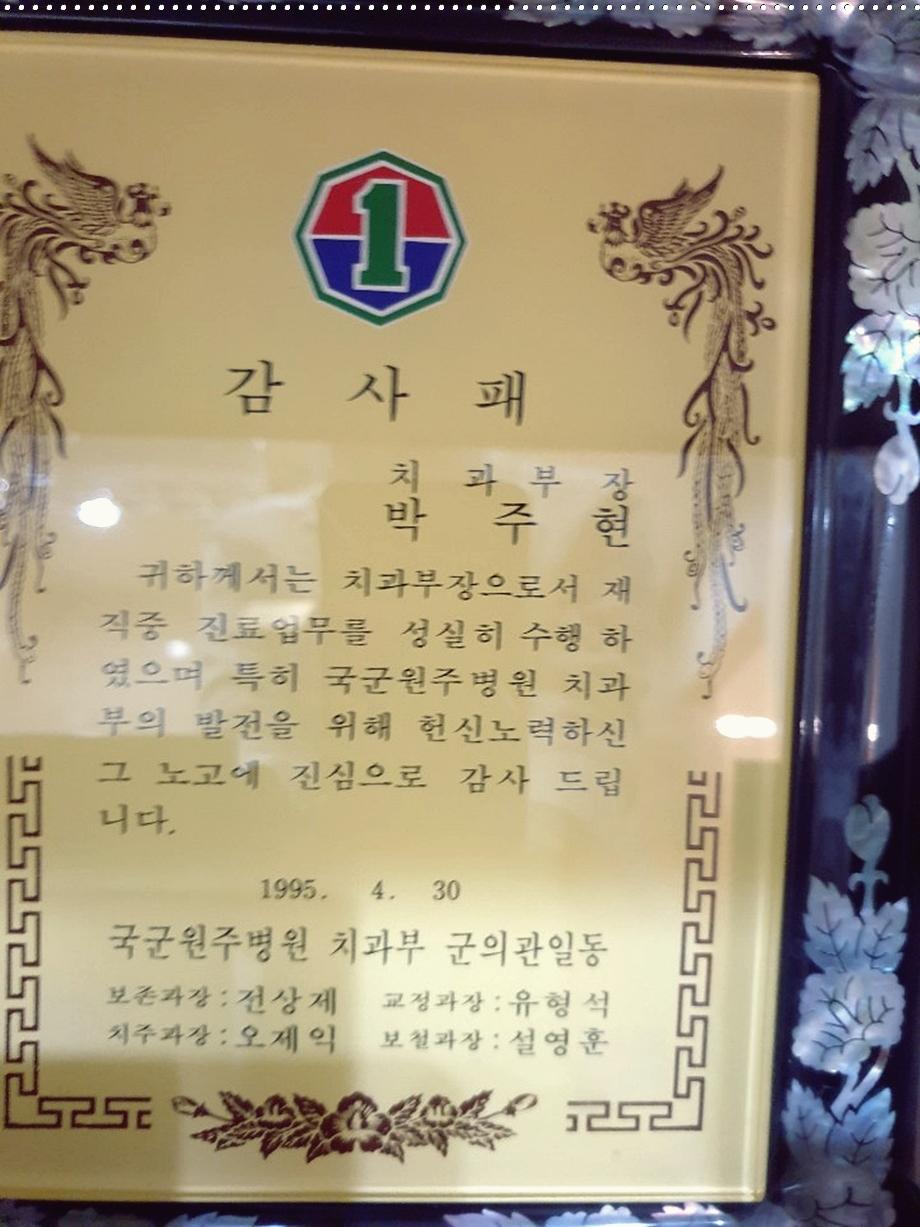 1
감 사 패
치 과 부 장
박 주 현
귀하께서는 치과부장으로서 재
직중 진료업무를 성실히 수행 하
였으며 특히 국군원주병원 치과
부의 발전을 위해 헌신노력하신
그 노고에 진심으로 감사 드립
니다.
1995. 4. 30
국군원주병원 치과부 군의관일동
보존과장 : 전상제 교정과장 : 유형석
치주과장 : 오제익 보철과장 : 설영훈